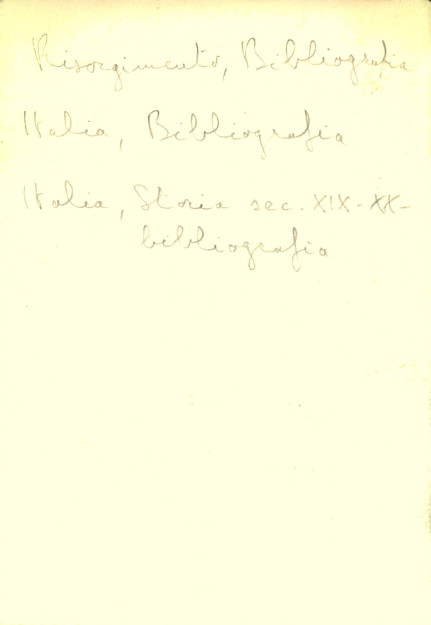 Risorgimento, Bibliografia
Italia, Bibliografia
Italia, Storia sec. XIX-XX-
bibliografia